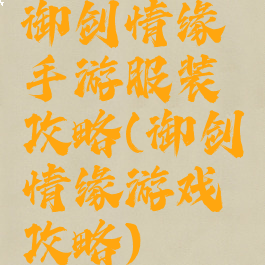 御创情缘
手游服装
攻略(御创
情缘游戏
攻略)